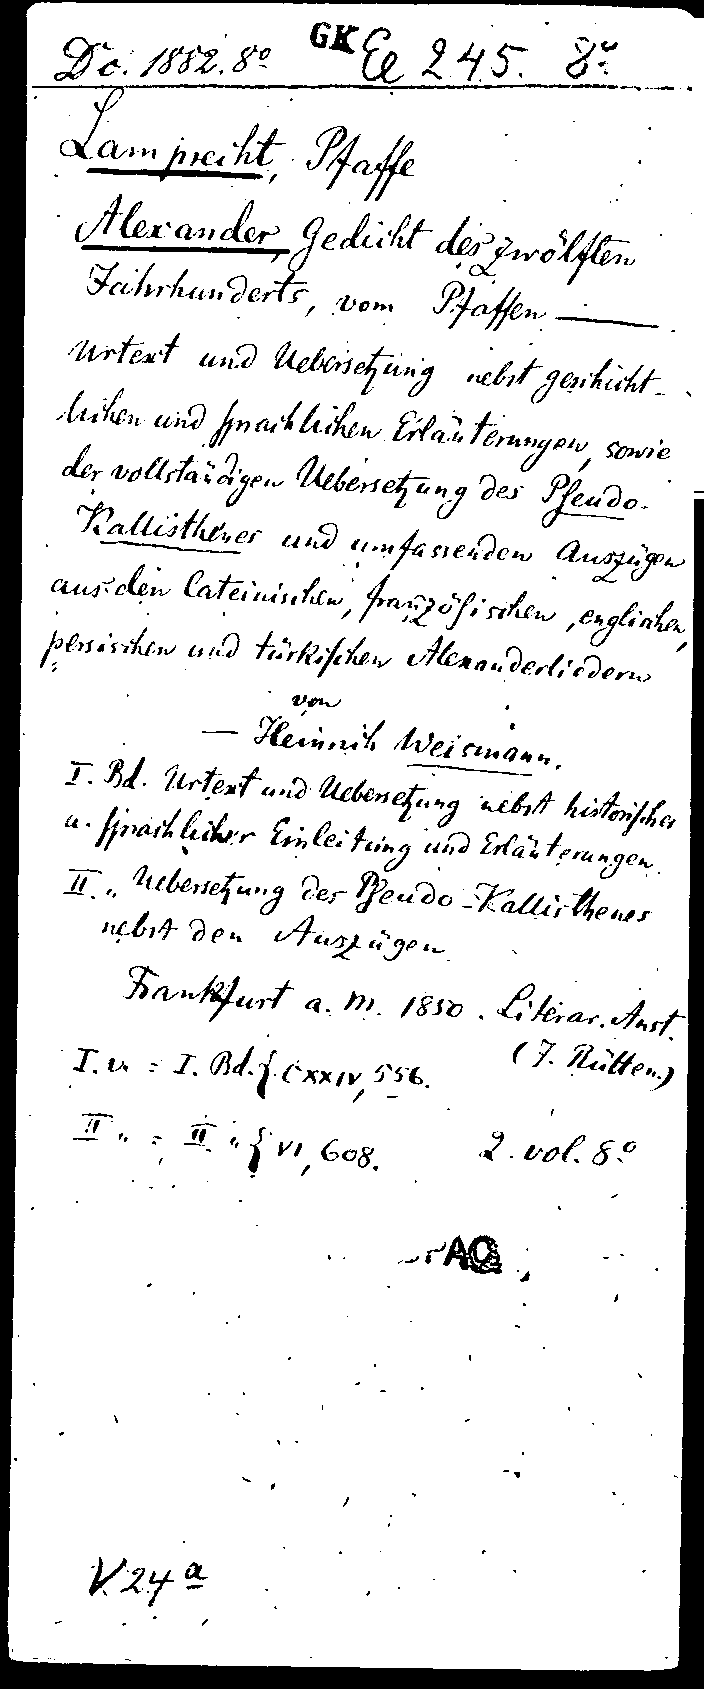 Dc. 1882. 8° GK Ee 245. 8°
Lamprecht, Pfaffe
Alexander, Gedicht des zwölften
Jahrhunderts, vom Pfaffen ———
Urtext und Uebersetzung nebst geschicht-
lichen und sprachlichen Erläuterungen, sowie
der vollständigen Uebersetzung des Pseudo-
Kallisthenes und umfassenden Auszügen
aus den lateinischen, französischen, englischen,
persischen und türkischen Alexanderliedern
von
— Heinrich Weismann.
I. Bd. Urtext und Uebersetzung nebst historischer
u. sprachlicher Einleitung und Erläuterungen.
II. „ Uebersetzung des Pseudo-Kallisthenes
nebst den Auszügen
Frankfurt a. M. 1850. Literar. Anst.
(J. Rütten.)
I. v. = I. Bd. { CXXIV, 556.
II „ = II „ { VI, 608. 2. vol. 8°
V. 24 a